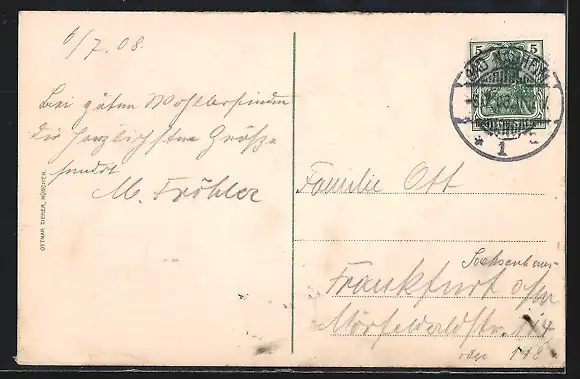 6/7.08.
Bei gutem Wohlbefinden
die herzlichsten Grüße
sendet
M. Fröhler
OTTMAR ZIEHER, MÜNCHEN.
5 5
BAD NAUHEIM
1
Familie Ott
Sachsenhaus-
Frankfurt a/m
Mörfelderldstr. 114
oder 118